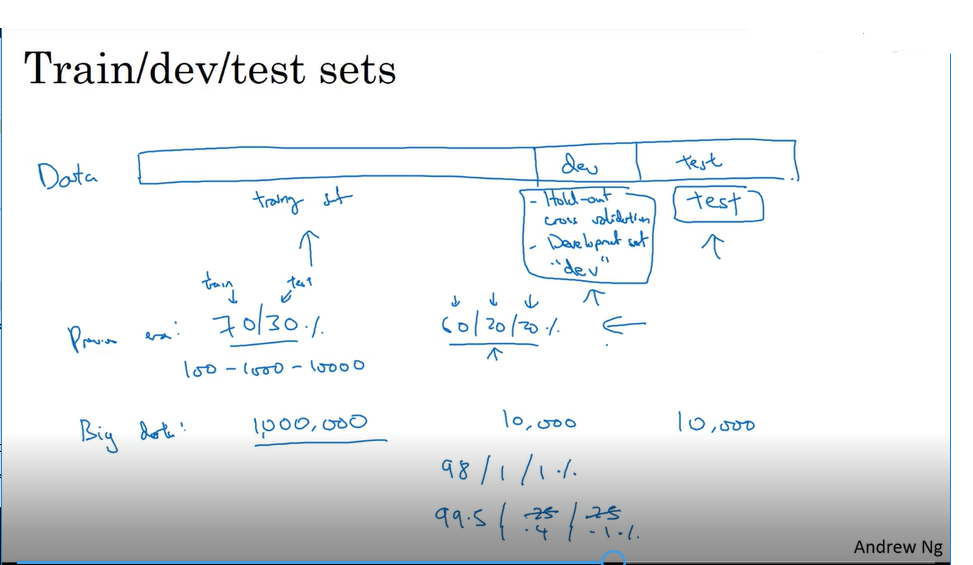 Train/dev/test sets
Data dev test
training set - Hold-out cross validation - Development set "dev" test
train test
Previous era: 70/30 % 60/20/20 %
100 - 1000 - 10000
Big data: 1,000,000 10,000 10,000
98 / 1 / 1 %
99.5 / .25 / .25
.4 / .1 %
Andrew Ng